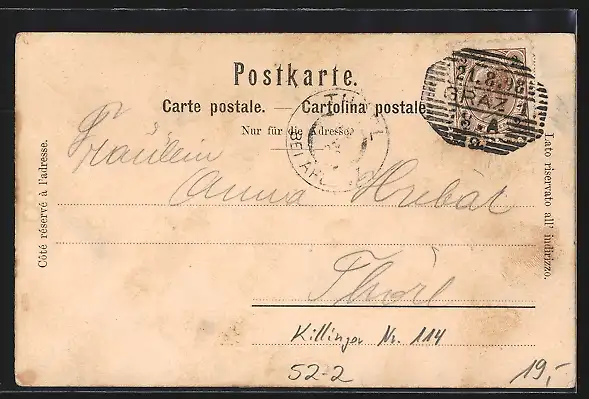 Postkarte.
Carte postale. — Cartolina postale
Nur für die Adresse.
21.8.98
GRAZ 1
Fräulein
Anna Hribár
Thörl
Killinger Nr. 114
52-2
19,-
Côté réservé à l'adresse.
Lato riservato all' indirizzo.